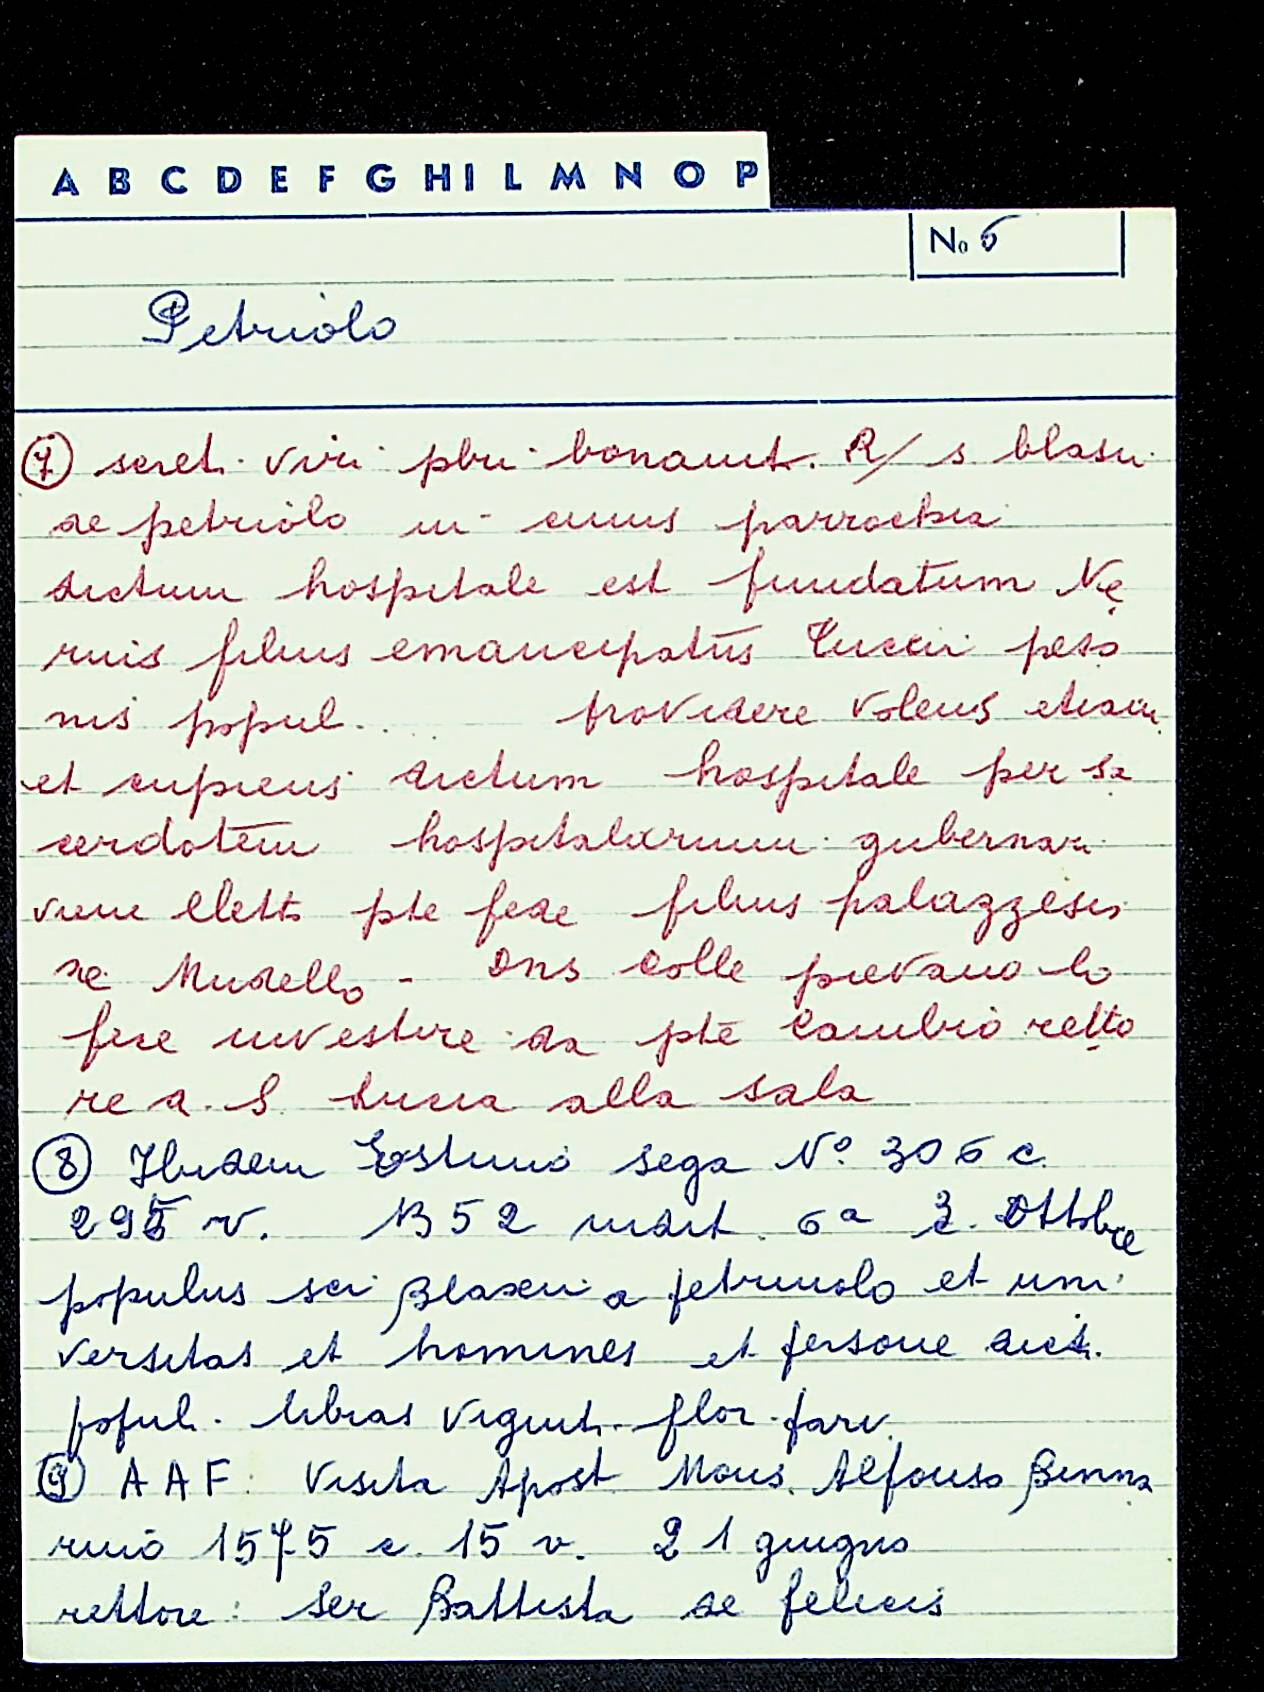 A B C D E F G H I L M N O P
No 6
Petriolo
7 scret. viri pbri bonavent. R/ s blasii
de petriolo in cuius parrochia
dictum hospitale est fundatum Ne
ruis filius emancipatus Tuccii peso
nis popul... providere volens etiam
et cupiens dictum hospitale per sa
cerdotem hospitalarium gubernari
viene eletto pte fede filius palazzesis
de Mudello - Dns Colle pievano lo
fece investire da pte Cambio retto
re a. S. Lucia alla sala
8 Ibidem Estimo sega N° 306 c.
295 v. 1352 indit. 6a 2. Ottobre
populus sci Blaxii a petriuolo et uni
versitas et homines et persone dict.
popul. libras vigint. flor. parv.
9 A A F: Visita Apost. Mons. Alfonso Binna
rino 1575 c. 15 v. 21 giugno
rettore: Ser Battista de felicis